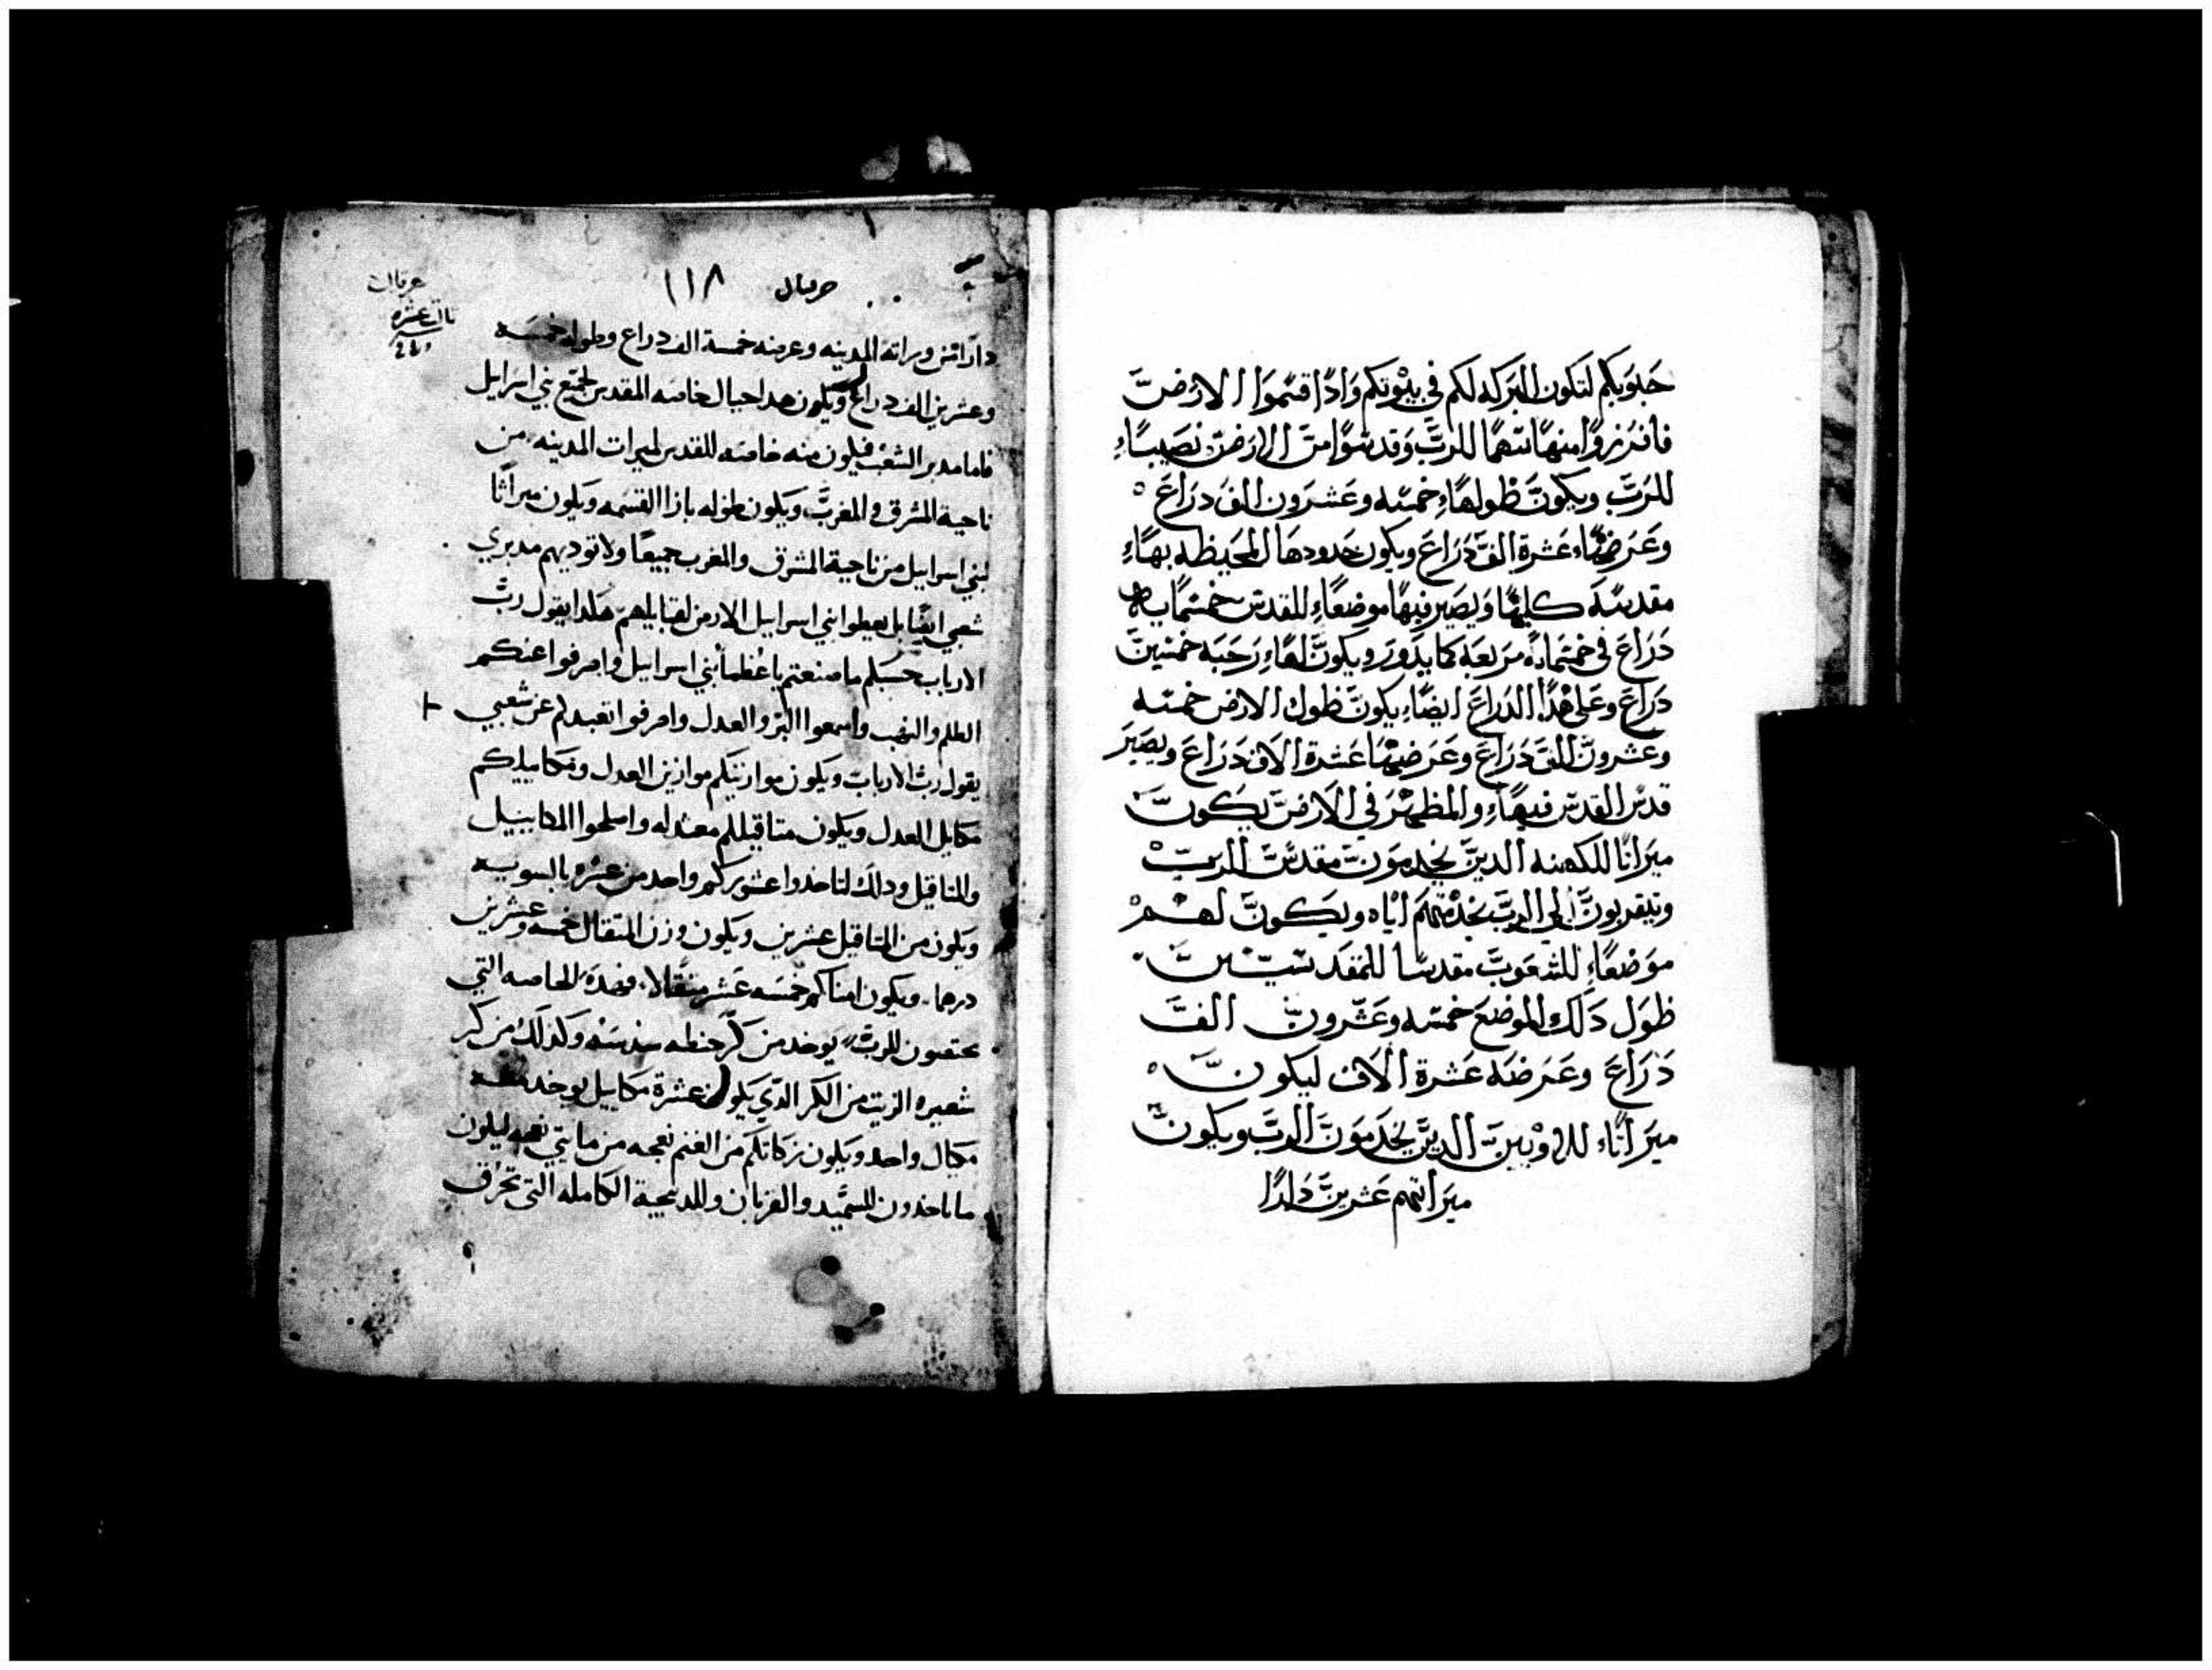 حبوبكم لتكون البركه لكم في بيوتكم واذا قسموا الارض
فافرزوا منها سهما للرب وقدسوا من الارض نصيباء
للرب ويكون طولهاء خمسه وعشرون الف دراع
وعرضهاء عشرة الف دراع ويكون حدودها المحيطه بهاء
مقدسه كلها ويصير فيها موضعاء للمقدس خمسمايه
دراع في خمسمايه مربعه كما يدور ويكون لهاء رحبه خمسين
دراع وعلى هدا الدراع ايضاء يكون طول الارض خمسه
وعشرون الف دراع وعرضها عشرة الاف دراع ويصير
قدس القدس فيهاء والمطهر في الارض يكون
ميراثا للكهنه الدين يخدمون مقدس الرب
ويتقربون الى الرب بخدمتهم اياه ويكون لهم
موضعاء للشعوب مقدسا للمقدسين
طول دلك الموضع خمسه وعشرون الف
دراع وعرضه عشرة الاف ليكون
ميراثاء للاويين الدين يخدمون الرب ويكون
ميراثهم عشرين دارا
حزقيال ١١٨
دارا من وراثة المدينه وعرضه خمسة الف دراع وطوله خمسه
وعشرين الف دراع ويكون هدا حيال خاصه المقدس لجميع بني اسرايل
فاما مدبر الشعب فيكون منه خاصه للقدس لميرات المدينه من
ناحية المشرق والمغرب ويكون طوله بازا القسمه ويكون ميراثا
لبني اسرايل من ناحية المشرق والمغرب جميعا ولا توديهم مدبري
شعبي ايضا بل يعطوا بني اسرايل الارض لقبايلهم هكدا يقول رب
الارباب حسبكم ما صنعتم يا عظما بني اسرايل واصرفوا عنكم
الظلم والنهب واسمعوا البر والعدل واصرفوا تعبدكم عن شعبي
يقول رب الارباب ويكون موازنيكم موازين العدل ومكاييلكم
مكاييل العدل ويكون متاقيلكم معتدله واصلحوا المكاييل
والمتاقيل ودلك لتاخدوا عشوركم واحد من عشره بالسويه
ويكون من المتاقيل عشرين ويكون وزن المتقال خمسه وعشرين
درهما ويكون امناكم خمسه عشر متقالا وهده الخاصه التي
تختصون للرب يوخد من كر حنطه سدسه وكدلك من كر
شعيره الزيت من الكر الدي يكون عشرة مكاييل يوخد منه
مكيال واحد ويكون زكاتكم من الغنم نعجه من مايتي نعجه ليكون
ما ياخدون للسميد والقربان وللدبيحة الكامله التي تحرق